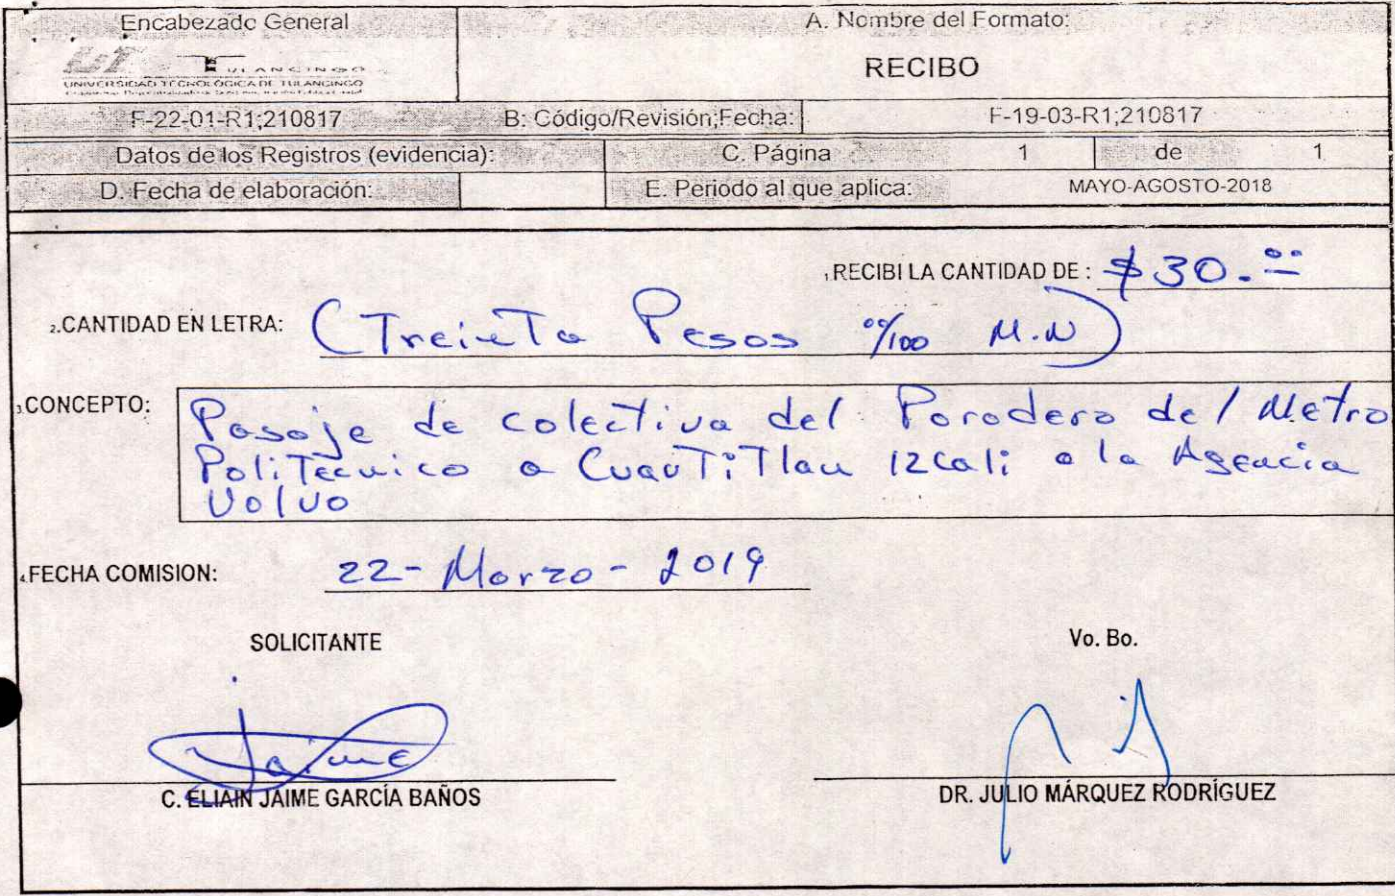 Encabezado General
A. Nombre del Formato:
UT TULANCINGO
UNIVERSIDAD TECNOLÓGICA DE TULANCINGO
RECIBO
F-22-01-R1;210817
B: Código/Revisión;Fecha:
F-19-03-R1;210817
Datos de los Registros (evidencia):
C. Página 1 de 1
D. Fecha de elaboración:
E. Periodo al que aplica: MAYO-AGOSTO-2018
1.RECIBI LA CANTIDAD DE : $30.00
2.CANTIDAD EN LETRA: (Treinta Pesos 00/100 M.N)
3.CONCEPTO: Pasaje de colectiva del Paradero del Metro
Politecnico a CuauTiTlan Izcali a la Agencia
Volvo
4.FECHA COMISION: 22-Marzo-2019
SOLICITANTE
Vo. Bo.
Jaime
C. ELIAIN JAIME GARCÍA BAÑOS
DR. JULIO MÁRQUEZ RODRÍGUEZ